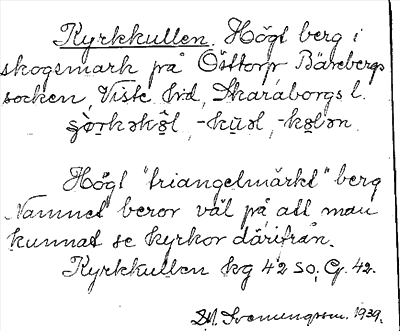 Kyrkkullen. Högt berg i
skogsmark på Östtorp, Bärebergs
socken, Viste hrd, Skaraborgs l.
Högt "triangelmärkt" berg
Namnet beror väl på att man
kunnat se kyrkor därifrån.
Kyrkkullen kg 42 SO; G. 42.
1939.